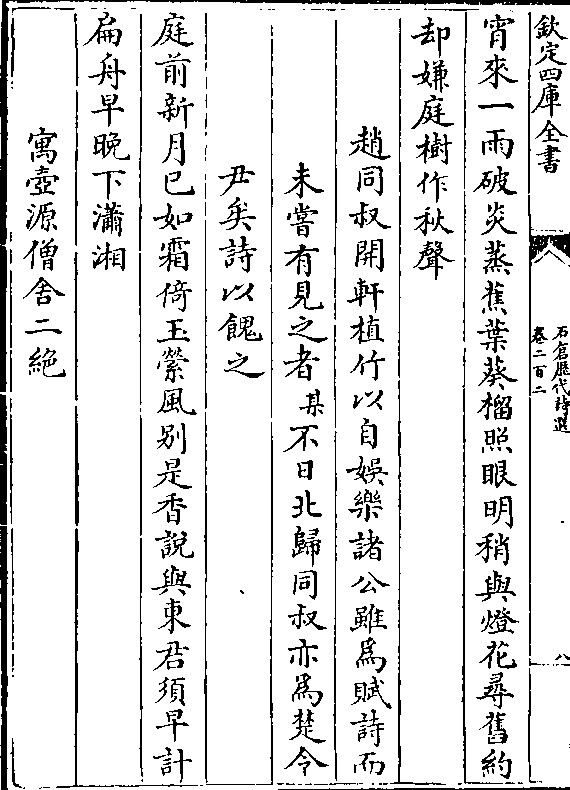 欽定四庫全書
石倉歴代詩選
卷二百二
八
宵來一雨破炎蒸蕉葉葵榴照眼明稍與燈花尋舊約
却嫌庭樹作秋聲
趙同叔開軒植竹以自娯樂諸公雖為賦詩而
未嘗有見之者某不日北歸同叔亦為楚令
尹矣詩以餽之
庭前新月已如霜倚玉縈風别是香説與東君須早計
扁舟早晚下瀟湘
寓壺源僧舍二絶